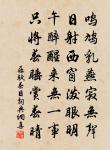 鳴鳩乳燕寂無聲
日射西窗潑眼明
午醉醒來無一事
只將春睡賞春晴
蘇軾春日詩詞典網書